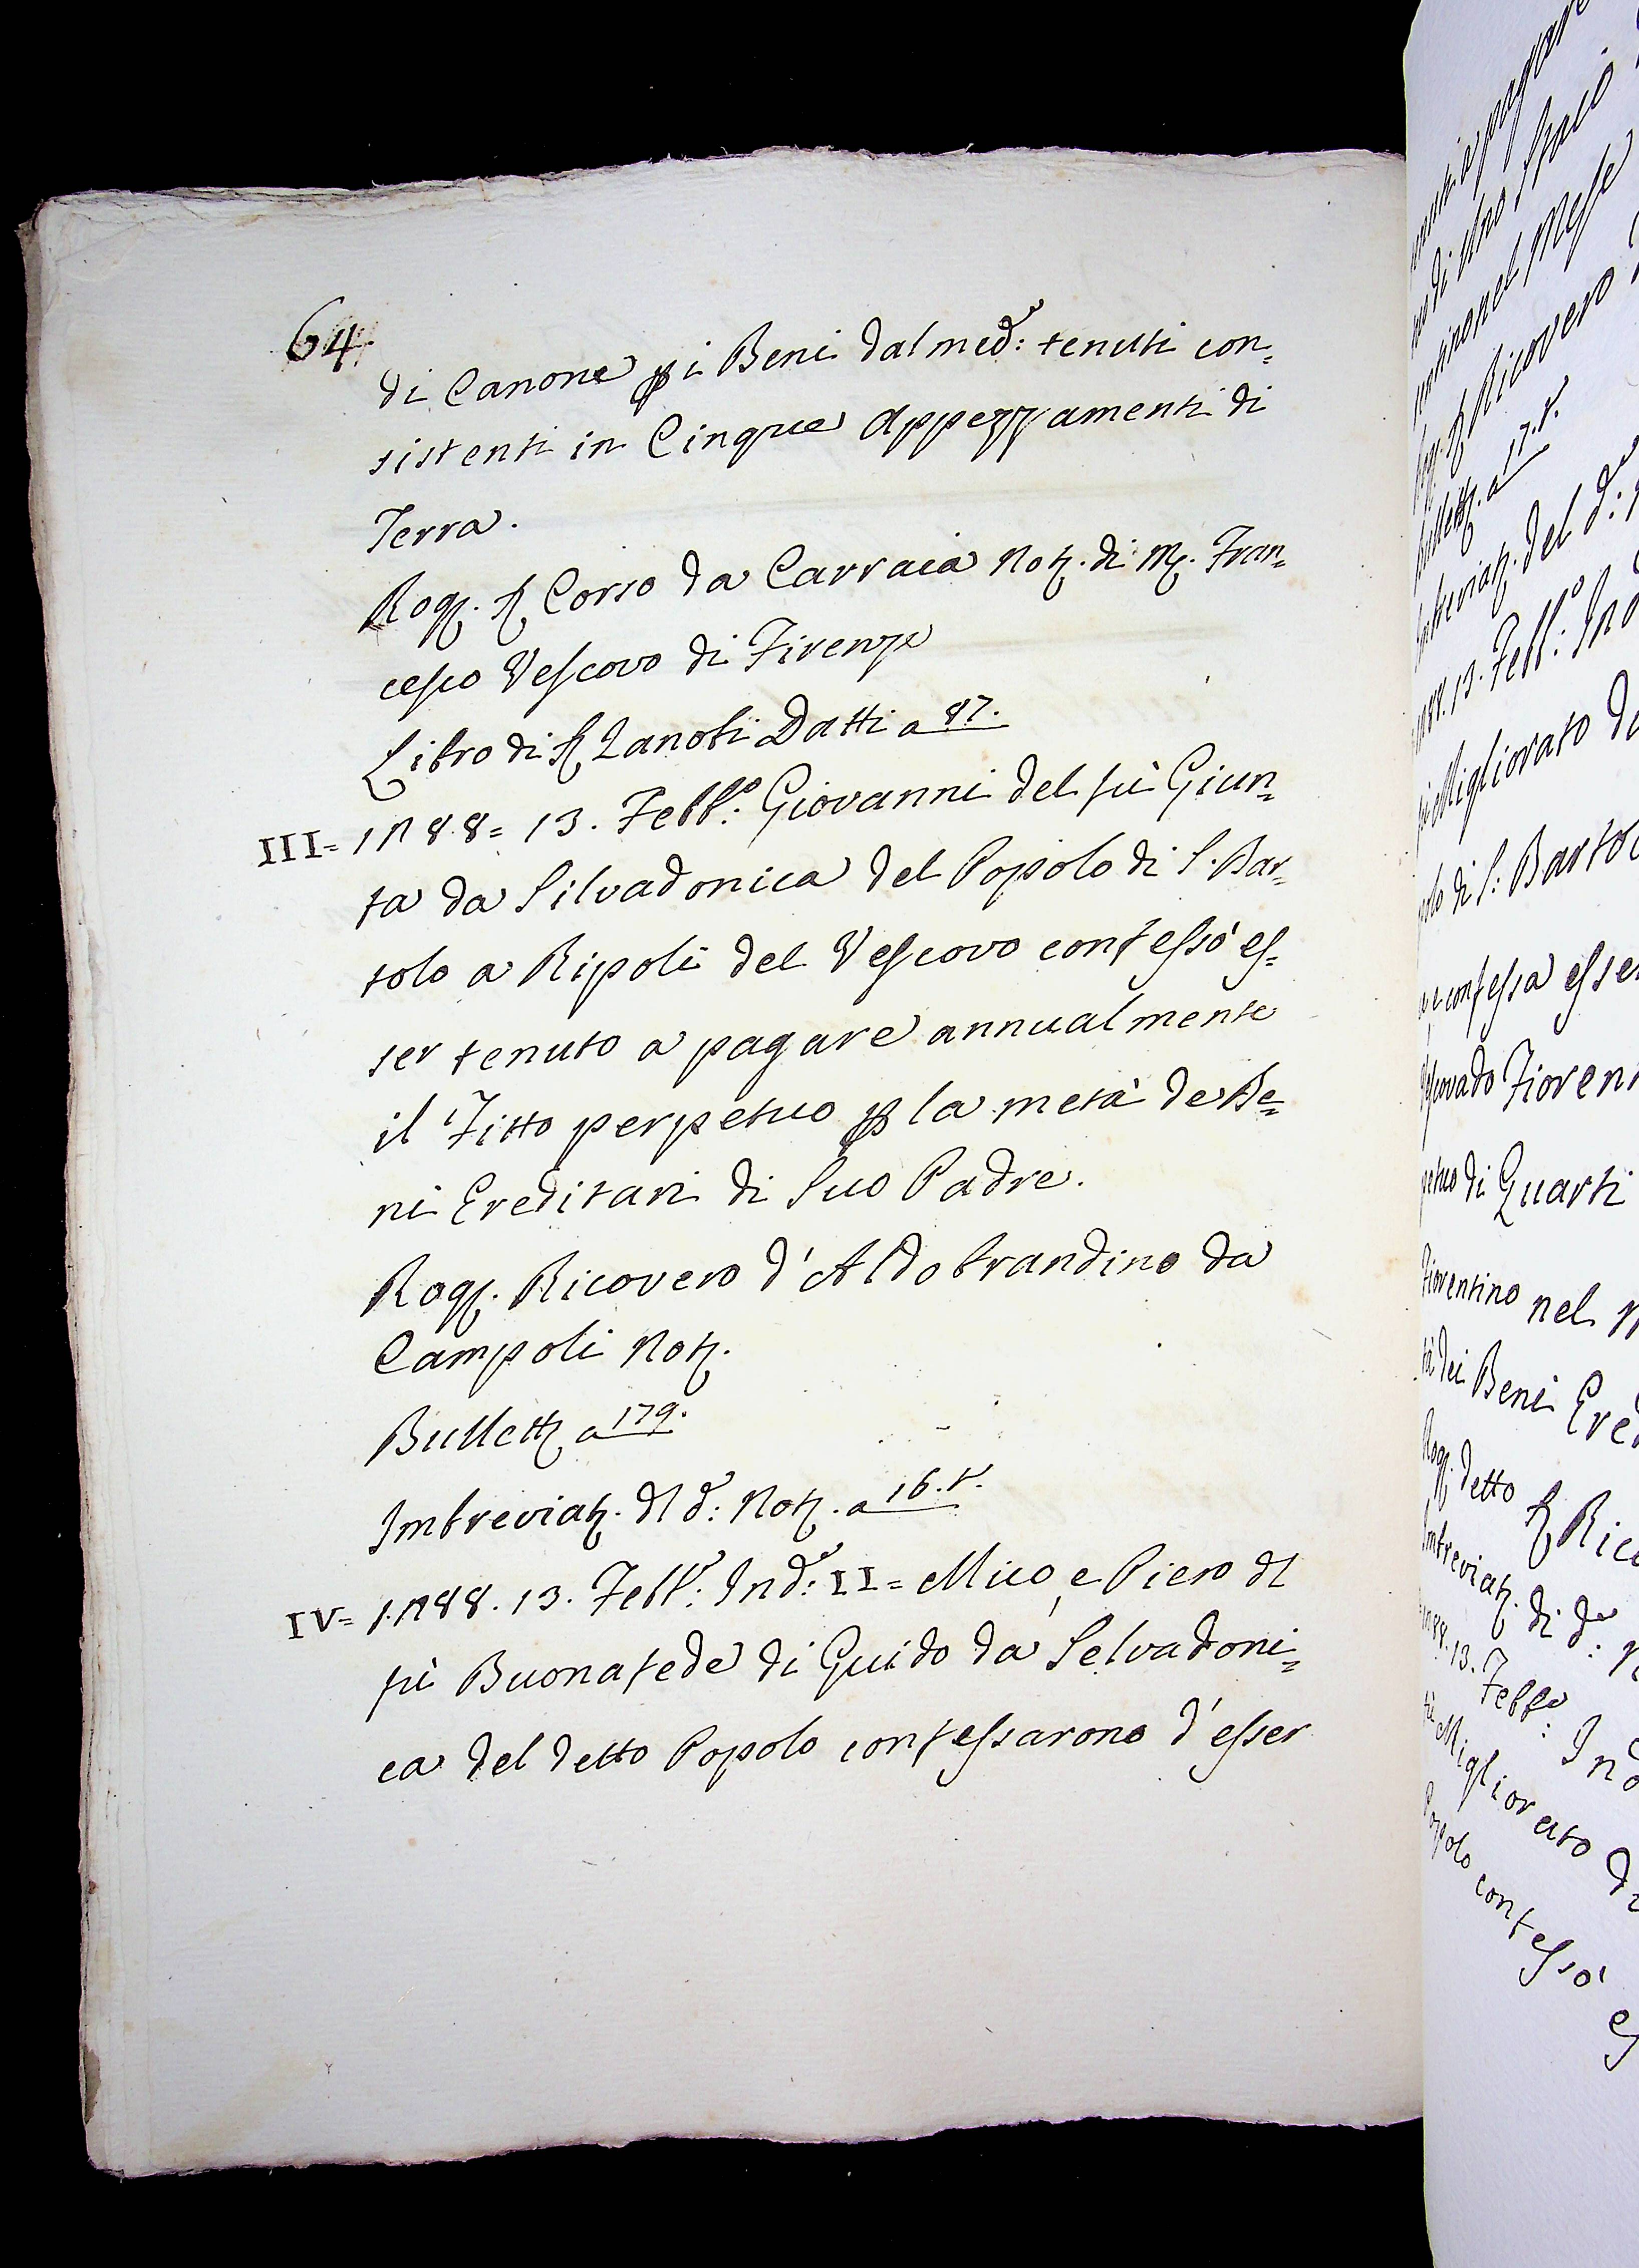 64.
di Canone p i Beni dal med:e tenuti con=
sistenti in Cinque Appezzamenti di
Terra.
Rog. S. Corso da Carraia Not. di M. Fran=
cesco Vescovo di Firenze
Libro di S. Zanobi Datti a 87.
III= 1288= 13. Febb:o Giovanni del fù Giun=
ta da Silvadonica del Popolo di S. Bar=
tolo a Ripoli del Vescovo confessò es=
ser tenuto a pagare annualmente
il Fitto perpetuo p la metà de Be=
ni Ereditari di Suo Padre.
Rog. Ricovero d'Aldobrandino da
Campoli Not.
Bullett. a 179.
Imbreviat. dl d:o Not. a 16.t.
IV= 1288. 13. Febb:o Ind:e II= Mico, e Piero dl
fù Buonafede di Guido da Selvadoni=
ca del detto Popolo confessarono d'esser
no di uno Staio
nel Mese
Ricovero
Bullett. a 17.t.
Imbreviat. del d:o
1288. 13. Febb:o Ind
Migliorato di
di S: Bartol
e confessa esser
Vescovado Fioren
di Quarti
Fiorentino nel
dei Beni Ered
Rog. detto S. Rico
Imbreviat. di d:o
1288. 13. Febb:o Ind
fù Migliorato di
Popolo confessò es